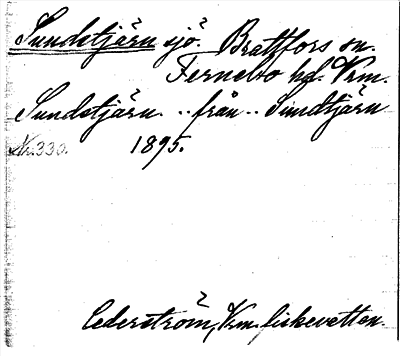 Sundstjärn sjö. Brattfors sn.
Fernebo hd. Vrm.
Sundstjärn. .. från .. Sundtjärn
Nr. 330. 1895.
Cederström, Vrm. fiskevatten.